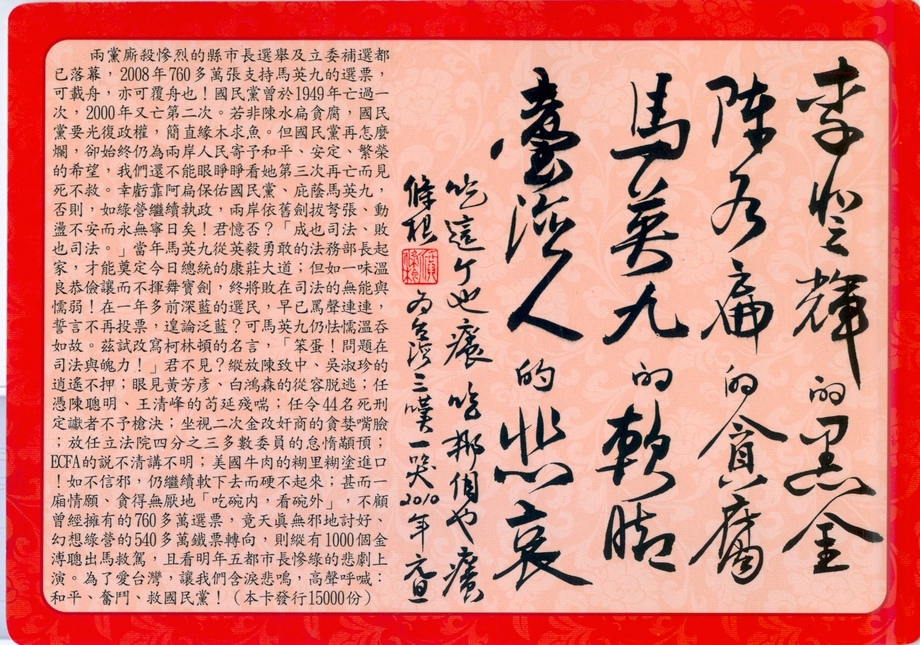 李登輝的黑金
陳水扁的貪腐
馬英九的軟腳
臺灣人的悲哀
吃這个也癢 吃那個也癢
條根 為台灣三嘆一哭2010年元旦
兩黨廝殺慘烈的縣市長選舉及立委補選都
已落幕，2008年760多萬張支持馬英九的選票，
可載舟，亦可覆舟也！國民黨曾於1949年亡過一
次，2000年又亡第二次。若非陳水扁貪腐，國民
黨要光復政權，簡直緣木求魚。但國民黨再怎麼
爛，卻始終仍為兩岸人民寄予和平、安定、繁榮
的希望，我們還不能眼睜睜看她第三次再亡而見
死不救。幸虧靠阿扁保佑國民黨、庇蔭馬英九，
否則，如綠營繼續執政，兩岸依舊劍拔弩張、動
盪不安而永無寧日矣！君憶否？「成也司法、敗
也司法。」當年馬英九從英毅勇敢的法務部長起
家，才能奠定今日總統的康莊大道；但如一味溫
良恭儉讓而不揮舞寶劍，終將敗在司法的無能與
懦弱！在一年多前深藍的選民，早已罵聲連連，
誓言不再投票，遑論泛藍？可馬英九仍怯懦溫吞
如故。茲試改寫柯林頓的名言，「笨蛋！問題在
司法與魄力！」君不見？縱放陳致中、吳淑珍的
逍遙不押；眼見黃芳彥、白鴻森的從容脫逃；任
憑陳聰明、王清峰的苟延殘喘；任令44名死刑
定讞者不予槍決；坐視二次金改奸商的貪婪嘴臉
；放任立法院四分之三多數委員的怠惰顢頇；
ECFA的說不清講不明；美國牛肉的糊里糊塗進口
！如不信邪，仍繼續軟下去而硬不起來；甚而一
廂情願、貪得無厭地「吃碗內，看碗外」，不顧
曾經擁有的760多萬選票，竟天真無邪地討好、
幻想綠營的540多萬鐵票轉向，則縱有1000個金
溥聰出馬救駕，且看明年五都市長慘綠的悲劇上
演。為了愛台灣，讓我們含淚悲鳴，高聲呼喊：
和平、奮鬥、救國民黨！（本卡發行15000份）